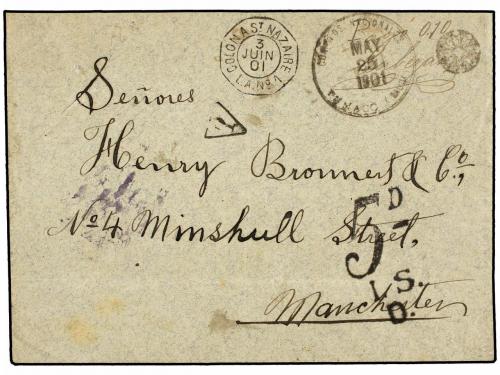 COLON A ST NAZAIRE
3
JUIN
01
L.A. Nº 1
MAY
25
1901
0,10
Señores
Henry Bronnert & Co,
No 4 Minshull Street,
Manchester
5D
I.S.
O.